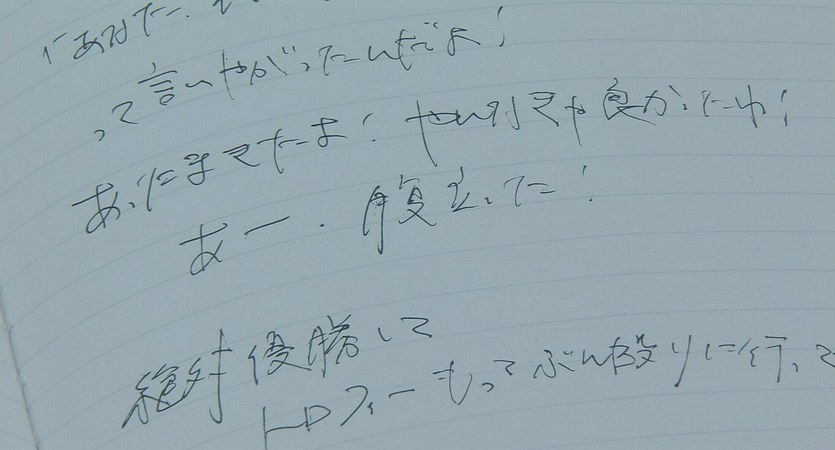 って言いやがったんだよ!
あったまきたよ! やめりゃ良かったわ!
あー. 腹立った!
絶対優勝して
トロフィーもってぶん殴りに行って